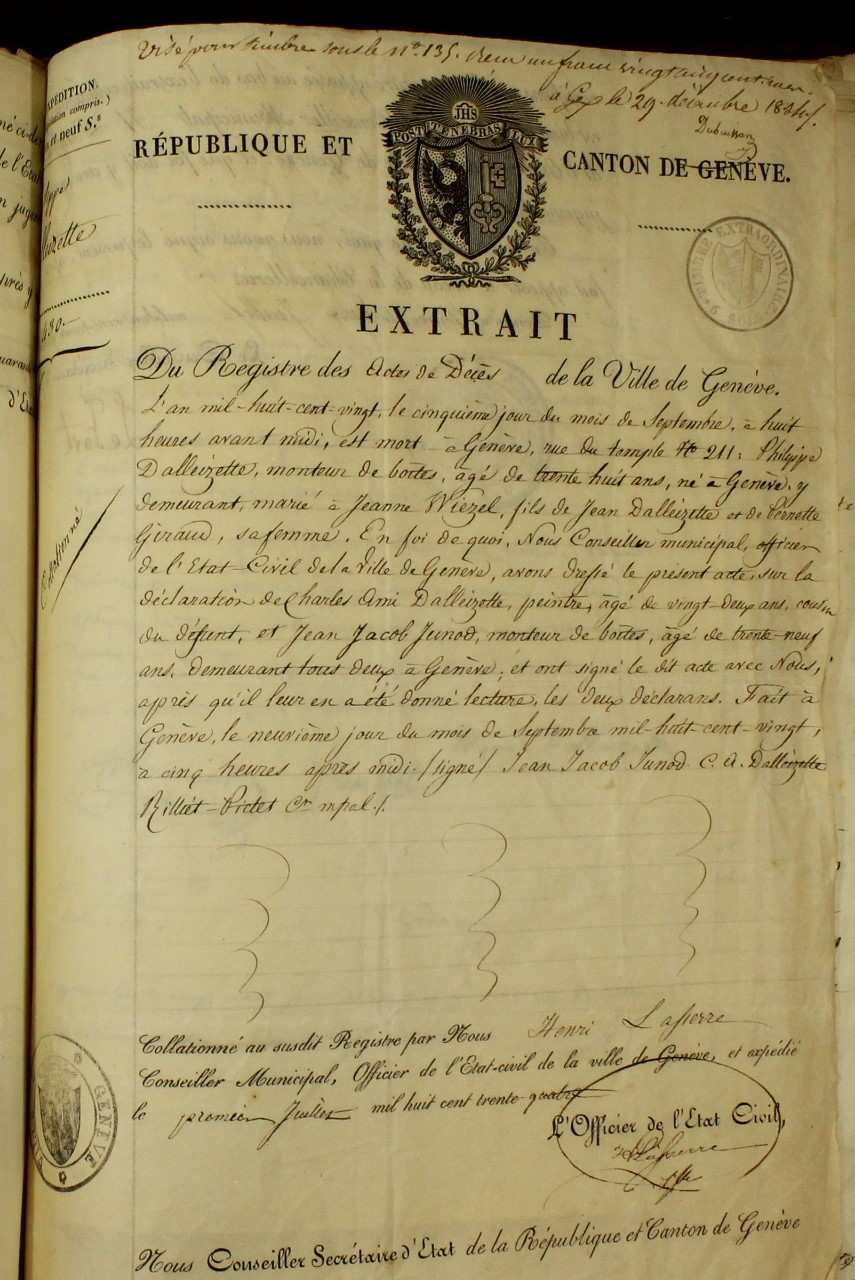 Visé pour timbre sous le n° 135. Reçu un franc vingt cinq centimes.
à Gex le 29 décembre 1844.
Dubuisson
EXPÉDITION.
compris.)
et neuf S.s
RÉPUBLIQUE ET
CANTON DE GENÈVE.
JHS
POST TENEBRAS LUX
TIMBRE EXTRAORDINAIRE
EXTRAIT
Du Registre des Actes de Décès de la Ville de Genève.
L'an mil-huit-cent-vingt, le cinquième jour du mois de Septembre, à huit
heures avant midi, est mort à Genève, rue du temple No 211: Philippe
Dalleizette, monteur de boîtes, âgé de trente huit ans, né à Genève, y
demeurant, marié à Jeanne Wiezel, fils de Jean Dalleizette et de Pernette
Giraud, sa femme. En foi de quoi, Nous Conseiller municipal, officier
de l'Etat-Civil de la Ville de Genève, avons dressé le présent acte, sur la
déclaration de Charles Ami Dalleizette, peintre, âgé de vingt-deux ans, cousin
du défunt, et Jean Jacob Junod, monteur de boîtes, âgé de trente-neuf
ans, demeurant tous deux à Genève; et ont signé le dit acte avec Nous,
après qu'il leur en a été donné lecture, les deux déclarans. Fait à
Genève, le neuvième jour du mois de Septembre mil-huit-cent-vingt,
à cinq heures après midi. (signé) Jean Jacob Junod. C. A. Dalleizette
Rilliet-Pictet Cer mpal.
Collationné
Collationné au susdit Registre par Nous Henri Lasserre
Conseiller Municipal, Officier de l'Etat-civil de la ville de Genève, et expédié
le premier Juillet mil huit cent trente-quatre
L'Officier de l'Etat Civil,
H Lasserre
GENÈVE
Nous Conseiller Secrétaire d'Etat de la République et Canton de Genève